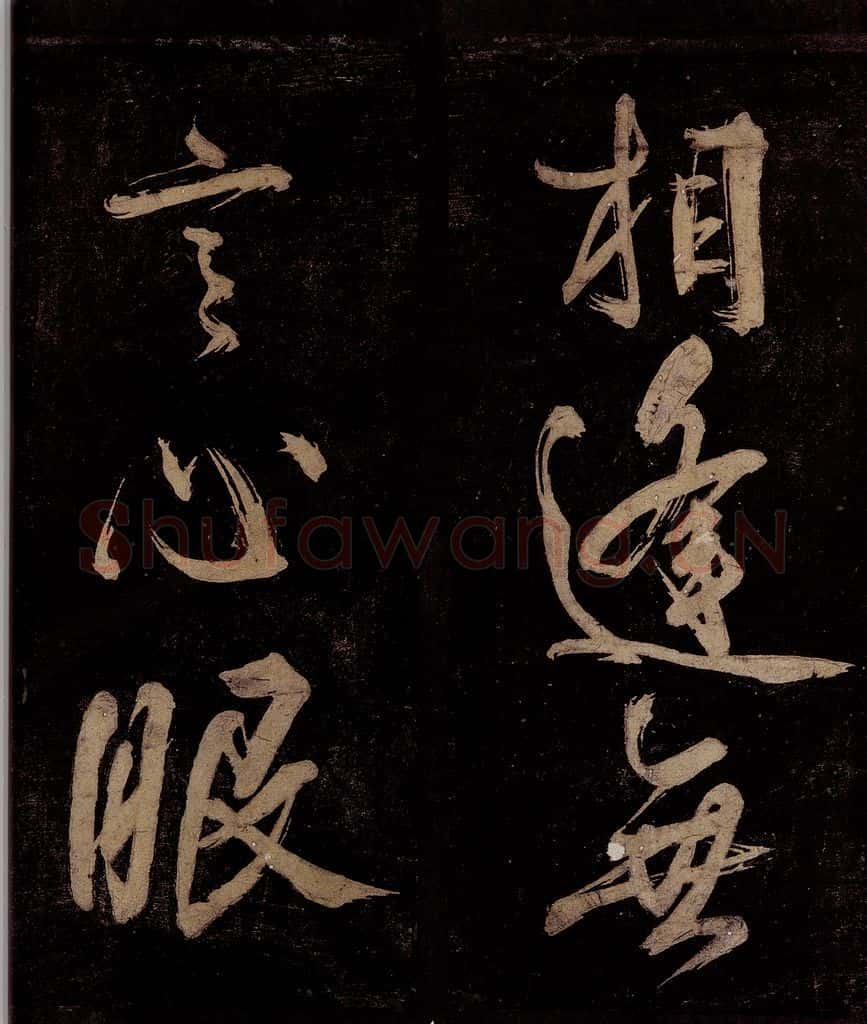 相逢無
言心眼
Shufawang.CN